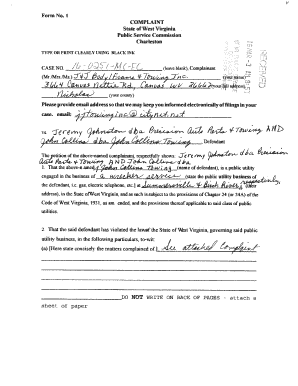 Form No. 1
COMPLAINT
State of West Virginia
Public Service Commission
Charleston
TYPE OR PRINT CLEARLY USING BLACK INK
CASE NO. 16-0251-MC-FC (leave blank), Complainant
(Mr./Mrs./Ms.) J&J Body/Frame & Towing Inc. (your name)
3664 Canvas Nettie Rd, Canvas WV 26662 (your full address)
Nicholas (your county)
Please provide email address so that we may keep you informed electronically of filings in your
case. email: jjtowinginc@citynet.net
vs. Jeremy Johnston dba Precision Auto Parts & Towing AND
John Collins dba John Collins Towing Defendant
The petition of the above-named complainant, respectfully shows: Jeremy Johnston dba Precision
Auto Parts & Towing AND John Collins dba
1. That the above-named John Collins Towing (name of defendant), is a public utility
engaged in the business of a wrecker service (state the public utility business of
the defendant, i.e. gas, electric telephone, etc.) at Summersville & Birch River, respectively, (state
address), in the State of West Virginia, and as such is subject to the provisions of Chapter 24 (or 24A) of the
Code of West Virginia, 1931, as amended, and the provisions thereof applicable to said class of public
utilities.
2. That the said defendant has violated the law of the State of West Virginia, governing said public
utility business, in the following particulars, to-wit:
(a) [Here state concisely the matters complained of.] See attached complaint
DO NOT WRITE ON BACK OF PAGES - attach a
sheet of paper